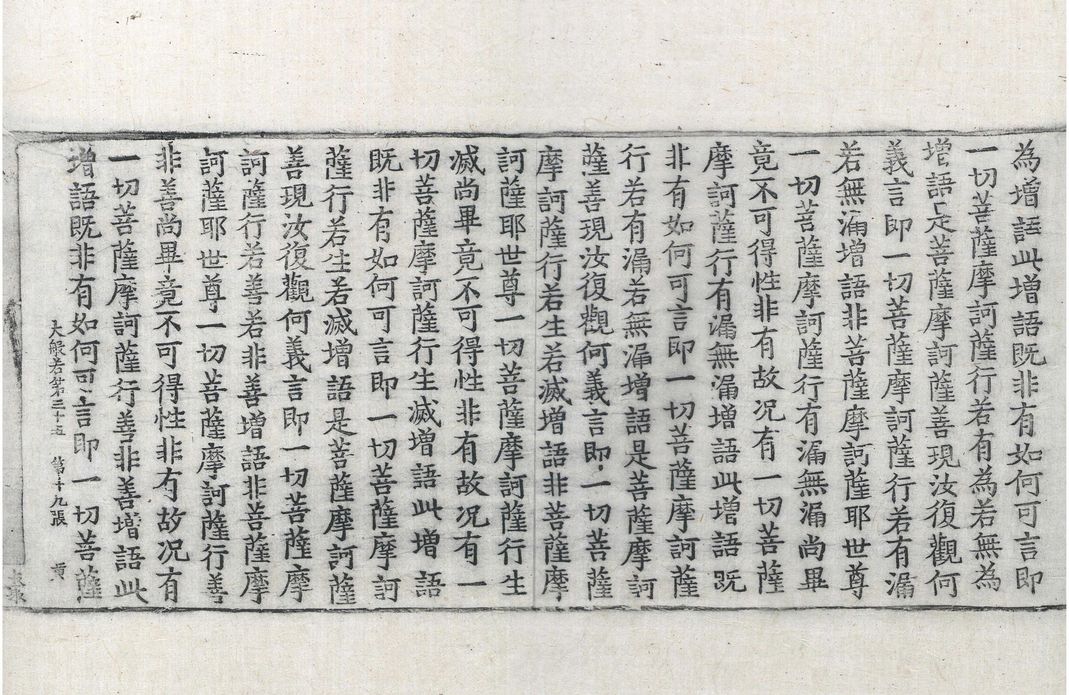 為增語此增語既非有如何可言即
一切菩薩摩訶薩行若有為若無為
增語是菩薩摩訶薩善現汝復觀何
義言即一切菩薩摩訶薩行若有漏
若無漏增語非菩薩摩訶薩耶世尊
一切菩薩摩訶薩行有漏無漏尚畢
竟不可得性非有故况有一切菩薩
摩訶薩行有漏無漏增語此增語既
非有如何可言即一切菩薩摩訶薩
行若有漏若無漏增語是菩薩摩訶
薩善現汝復觀何義言即一切菩薩
摩訶薩行若生若滅增語非菩薩摩
訶薩耶世尊一切菩薩摩訶薩行生
滅尚畢竟不可得性非有故况有一
切菩薩摩訶薩行生滅增語此增語
既非有如何可言即一切菩薩摩訶
薩行若生若滅增語是菩薩摩訶薩
善現汝復觀何義言即一切菩薩摩
訶薩行若善若非善增語非菩薩摩
訶薩耶世尊一切菩薩摩訶薩行善
非善尚畢竟不可得性非有故况有
一切菩薩摩訶薩行善非善增語此
增語既非有如何可言即一切菩薩
大般若第三十五 第十九張 黄